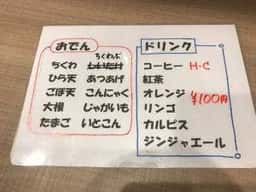 おでん
ちくわぶ
ちくわ
ひら天 あつあげ
ごぼ天 こんにゃく
大根 じゃがいも
たまご いとこん
ドリンク
コーヒー H・C
紅茶
オレンジ ¥100円
リンゴ
カルピス
ジンジャエール